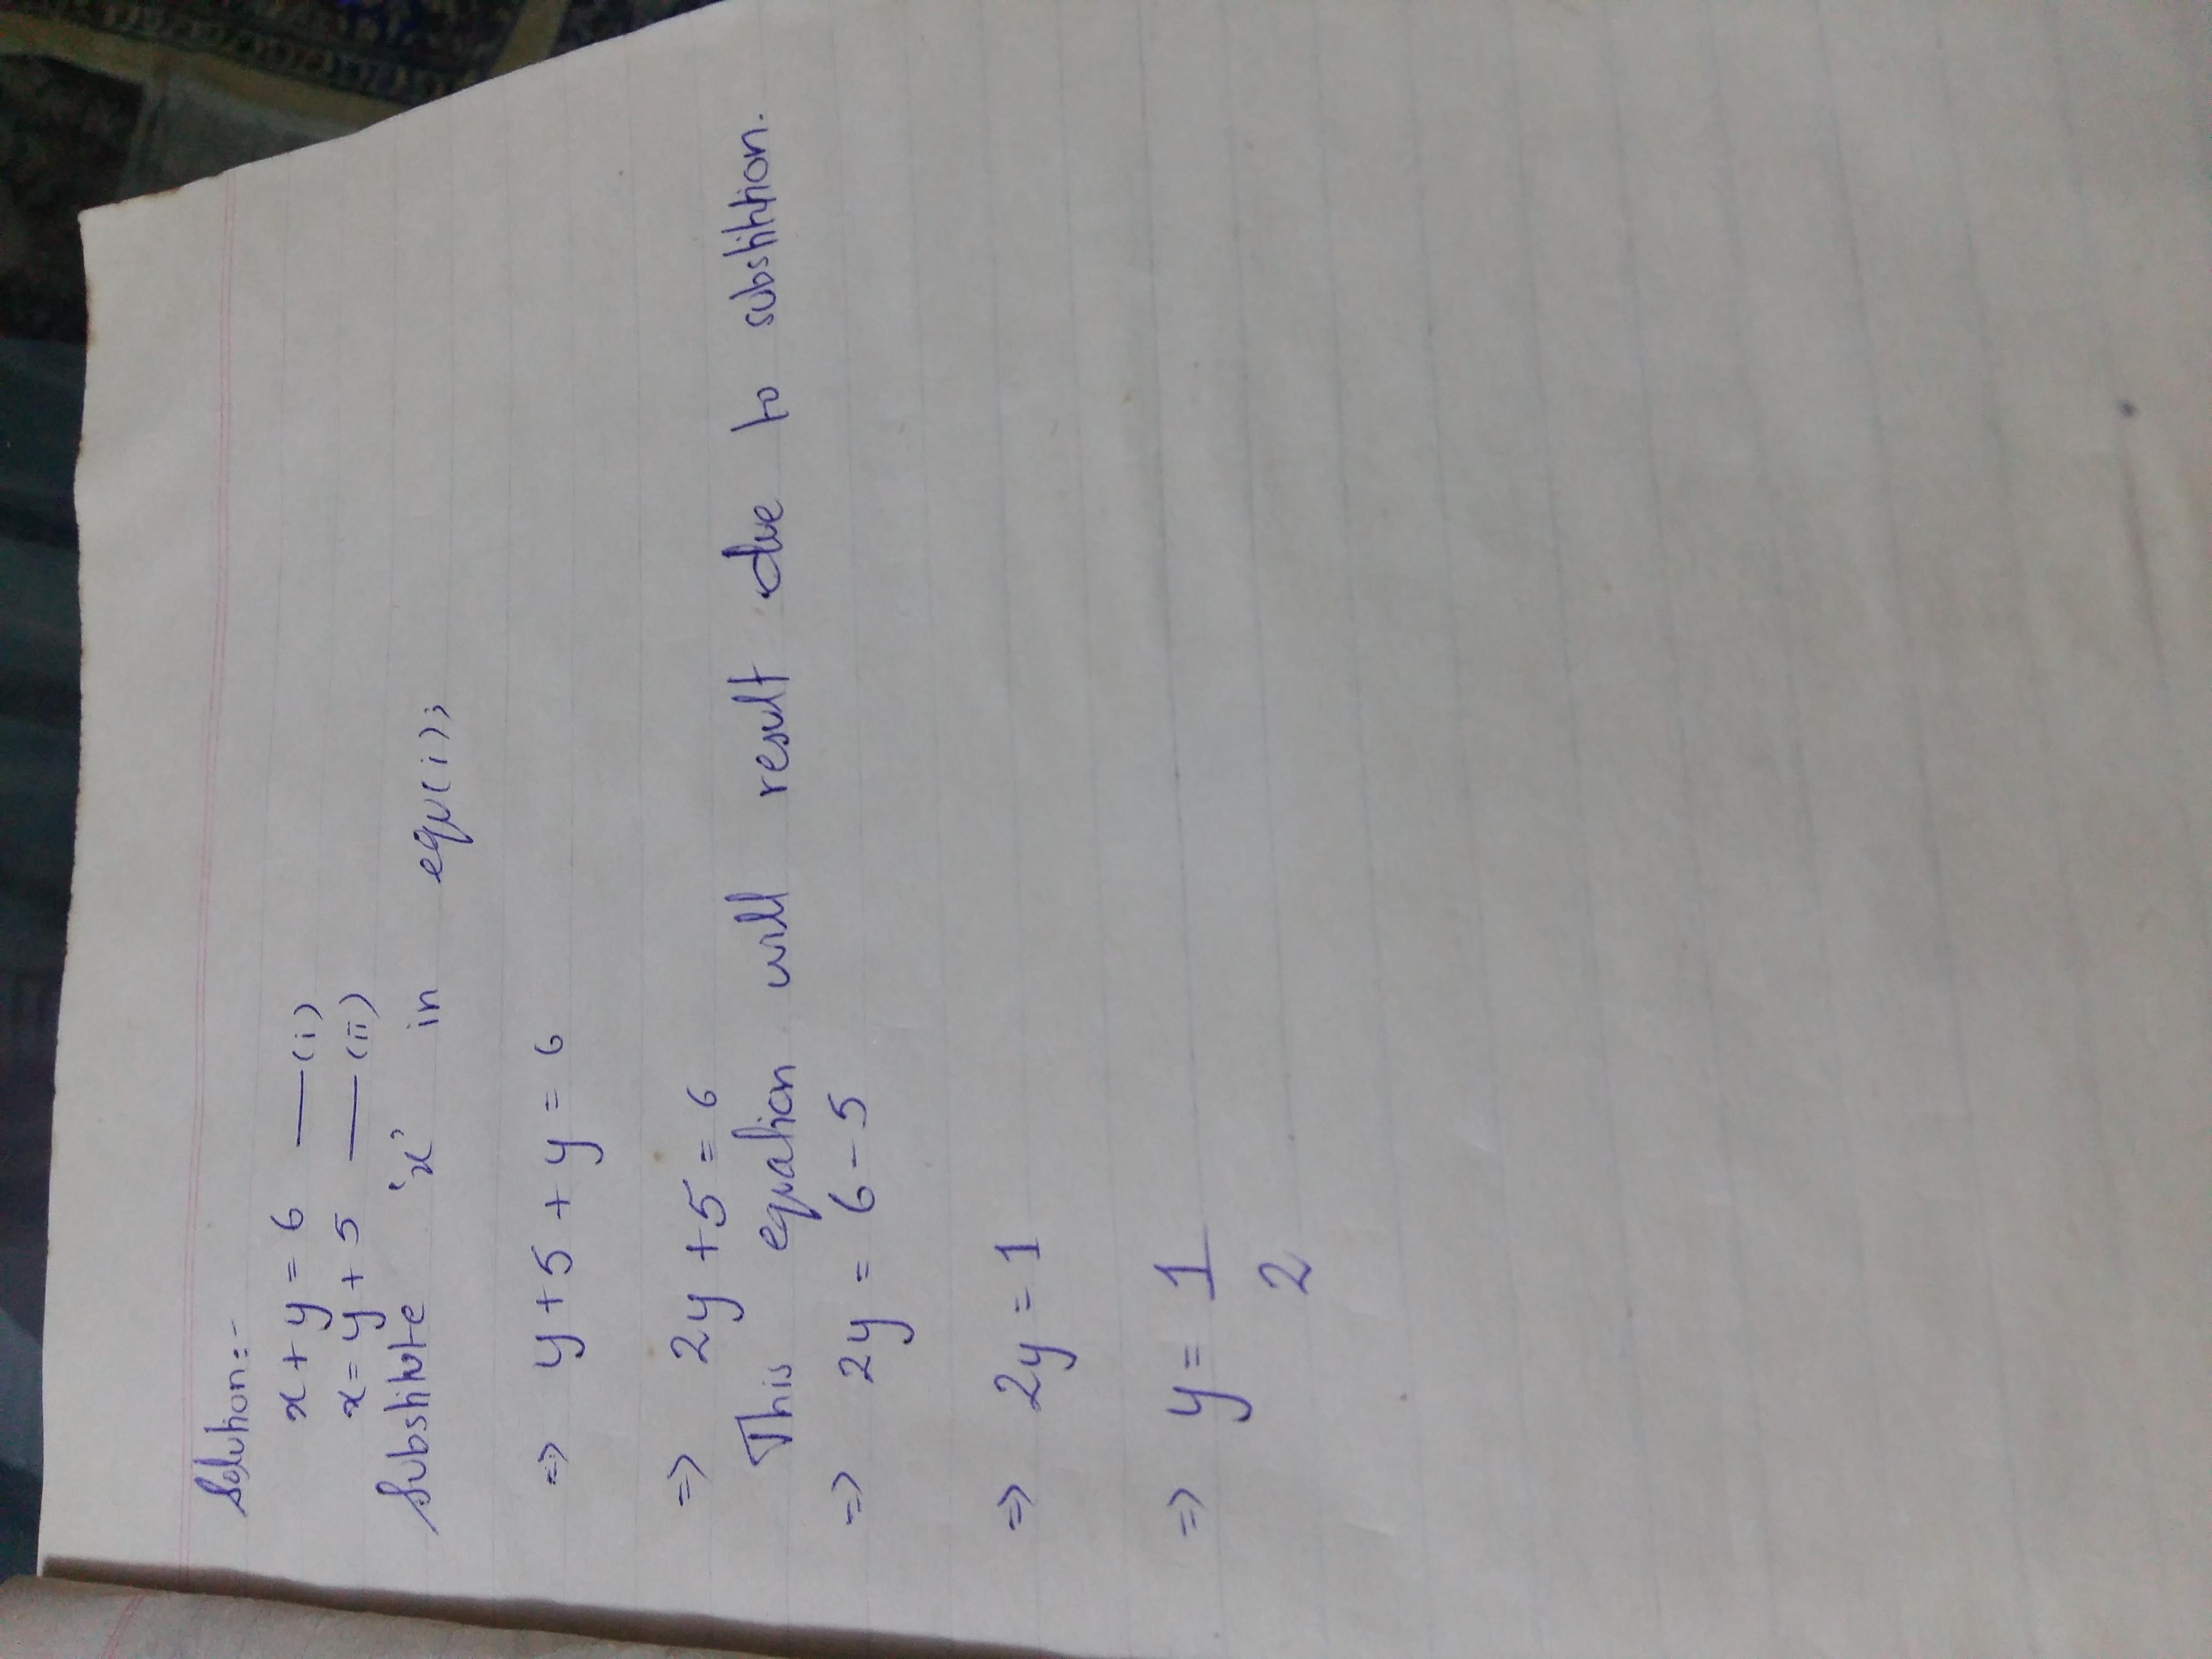 Solution:-
x + y = 6 —— (i)
x = y + 5 —— (ii)
Substitute 'x' in equ(i);
=> y + 5 + y = 6
=> 2y + 5 = 6
This equation will result due to substitution.
=> 2y = 6 - 5
=> 2y = 1
=> y = 1
2